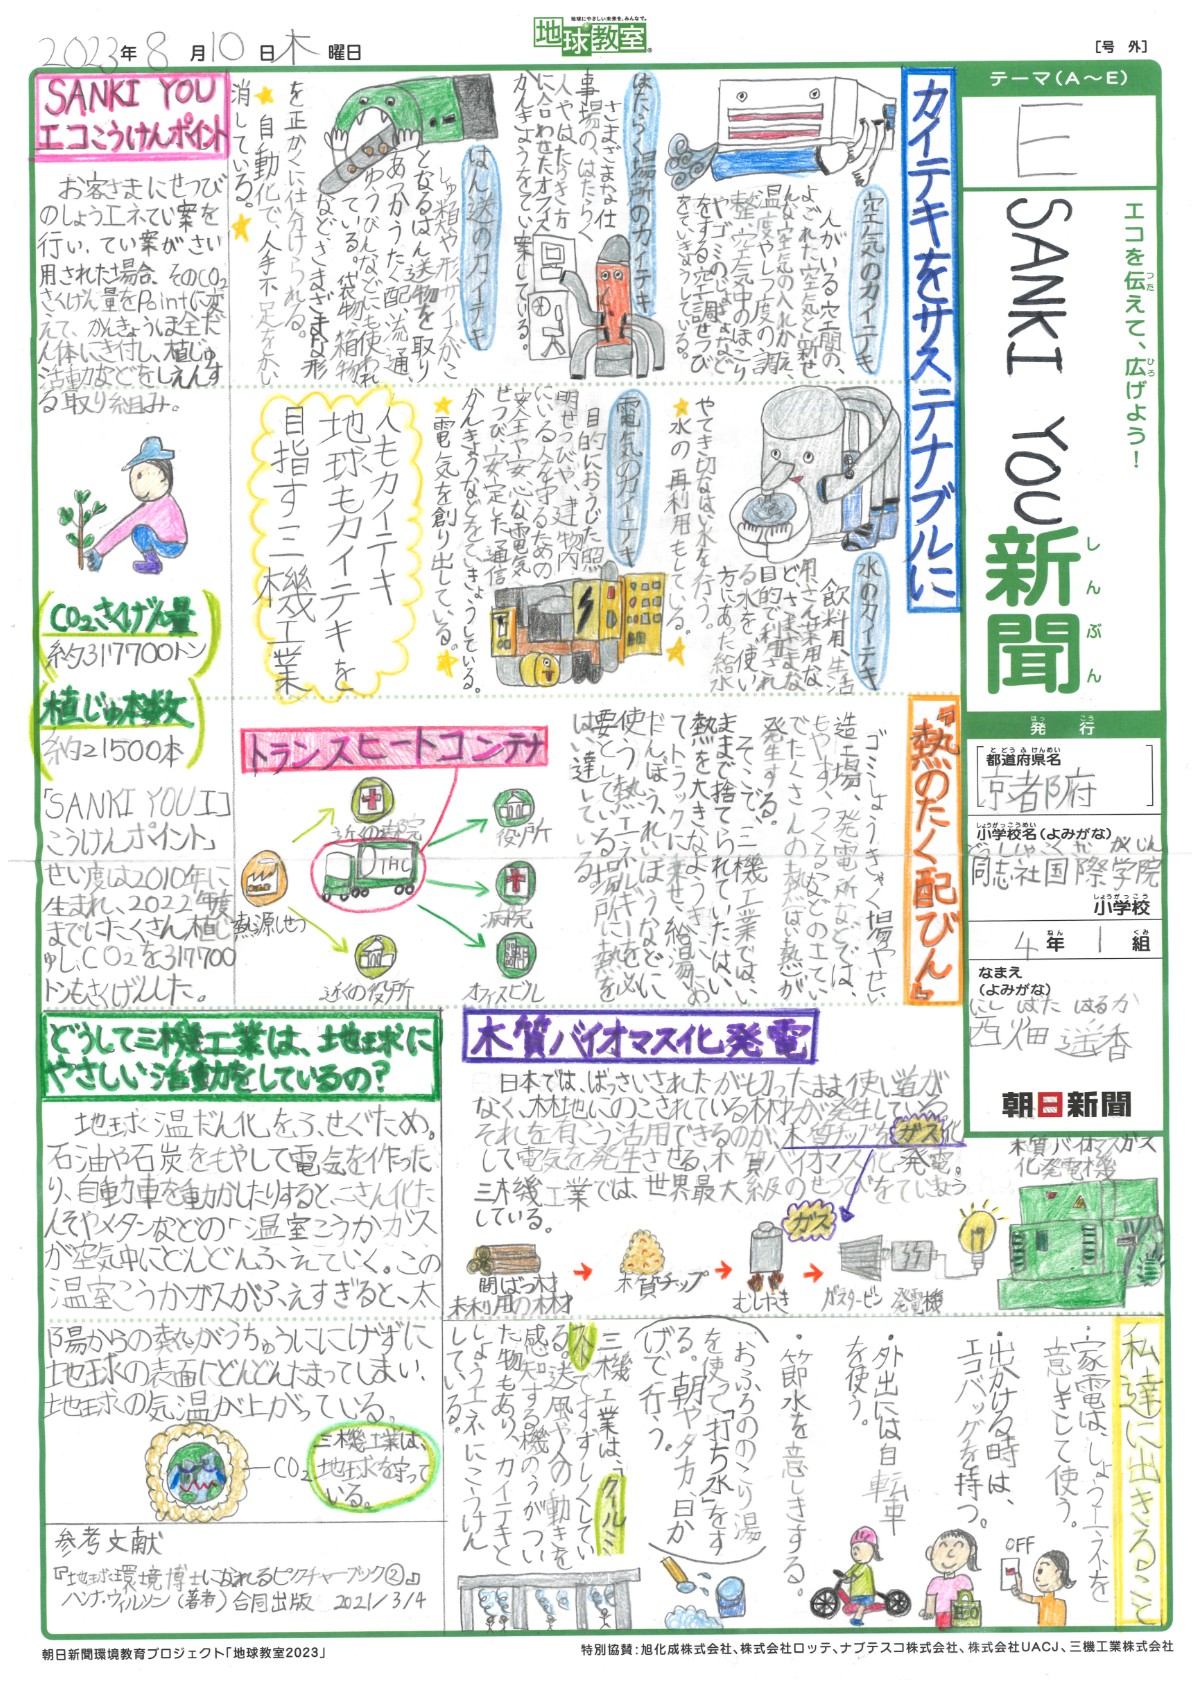 地球にやさしい未来を、みんなで。
地球教室
2023年8月10日木曜日
[号 外]
テーマ(A～E)
E
エコを伝えて、広げよう!
つた
ひろ
SANKI YOU
新聞
しんぶん
発行
はっこう
都道府県名
とどうふけんめい
京都府
小学校名(よみがな)
しょうがっこうめい
どうししゃこくさいがくいん
同志社国際学院
小学校
しょうがっこう
4年1組
ねん
くみ
なまえ
(よみがな)
にしはた はるか
西畑 遥香
朝日新聞
カイテキをサステナブルに
空気のカイテキ
人がいる空間の、
よごれた空気と新せ
んな空気の入れかえ、
温度やしつ度の調
整、空気中のほこり
やゴミのじょきょなど
をする空調せつび
をていきょうしている。
はたらく場所のカイテキ
さまざまな仕
事場の、はたらく
人やはたらき方
に合わせたオフィス
かんきょうをてい案している。
はん送のカイテキ
しゅ類や形、サイズがこ
となるはん送物を取り
あつかうたく配、流通、
ゆうびんなどにも使われ
ている。袋物、箱物
などさまざまな形
を正かくに仕分けられる。
★自動化で、人手不足をかい
消している。★
水のカイテキ
飲料用、生活
用、さん業用な
どさまざまな
目的で利用され
る水を、使い
方にあった給水
やてき切なはい水を行う。
★水の再利用もしている。★
電気のカイテキ
目的におうじた照
明せつびや、建物内
にいる人を守るための
安全や安心な電気
せつび、安定した通信
かんきょうなどをていきょうしている。
★電気を創り出している。★
人もカイテキ
地球もカイテキを
目指す三機工業
SANKI YOU
エコこうけんポイント
お客さまにせつび
のしょうエネてい案を
行い、てい案がさい
用された場合、そのCO₂
さくげん量をPointに変
えて、かんきょうほ全だ
ん体にき付し、植じゅ
活動などをしえんす
る取り組み。
CO₂さくげん量
約317700トン
植じゅ本数
約21500本
「SANKI YOUエコ
こうけんポイント」
せい度は2010年に
生まれ、2022年度
までにたくさん植じ
ゅし、CO₂を317700
トンもさくげんした。
『熱のたく配びん』
ゴミしょうきゃく場やせい
造工場、発電所などでは、
もやす、つくるなどのこうてい
でたくさんのはい熱が
発生する。
そこで、三機工業では、い
ままで捨てられていたはい
熱を大きなようきにいれ
てトラックに乗せ、給湯、
だんぼう、れいぼうなどに
使う熱エネルギーを必
要としている場所に熱を
はい達している。
トランスヒートコンテナ
近くの病院
役所
THC
熱源しせつ
病院
近くの役所
オフィスビル
どうして三機工業は、地球に
やさしい活動をしているの?
地球温だん化をふせぐため。
石油や石炭をもやして電気を作った
り、自動車を動かしたりすると、二さん化た
んそやメタンなどの「温室こうかガス」
が空気中にどんどんふえていく。この
温室こうかガスがふえすぎると、太
陽からの熱がうちゅうににげずに
地球の表面にどんどんたまってしまい、
地球の気温が上がっている。
CO₂
三機工業は、
地球を守って
いる。
参考文献
『地球環境博士になれるピクチャーブック②』
ハンナ・ウィルソン(著者) 合同出版 2021/3/4
木質バイオマスガス化発電
日本では、ばっさいされたが切ったまま使い道が
なく、林地にのこされている木材が発生している。
それを有こう活用できるのが、木質チップをガス化
して電気を発生させる、木質バイオマスガス化発電。
三機工業では、世界最大級のせつびをていきょう
している。
木質バイオマスガス
化発電機
ガス
間ばつ材
未利用の木材
木質チップ
むしやき
ガスタービン
発電機
私達に出きること
・家電は、しょうエネを
意しきして使う。
・出かける時は、
エコバッグを持つ。
・外出には自転車
を使う。
・節水を意しきする。
(おふろののこり湯
を使って「打ち水」をす
る。朝や夕方、日か
げで行う。)
三機工業は、「クールミ
スト」ですずしくしてい
る。送風や人の動きを
感知する機のうがつい
た物もあり、カイテキと
しょうエネにこうけん
している。
OFF
ECO
朝日新聞環境教育プロジェクト「地球教室2023」
特別協賛:旭化成株式会社、株式会社ロッテ、ナブテスコ株式会社、株式会社UACJ、三機工業株式会社